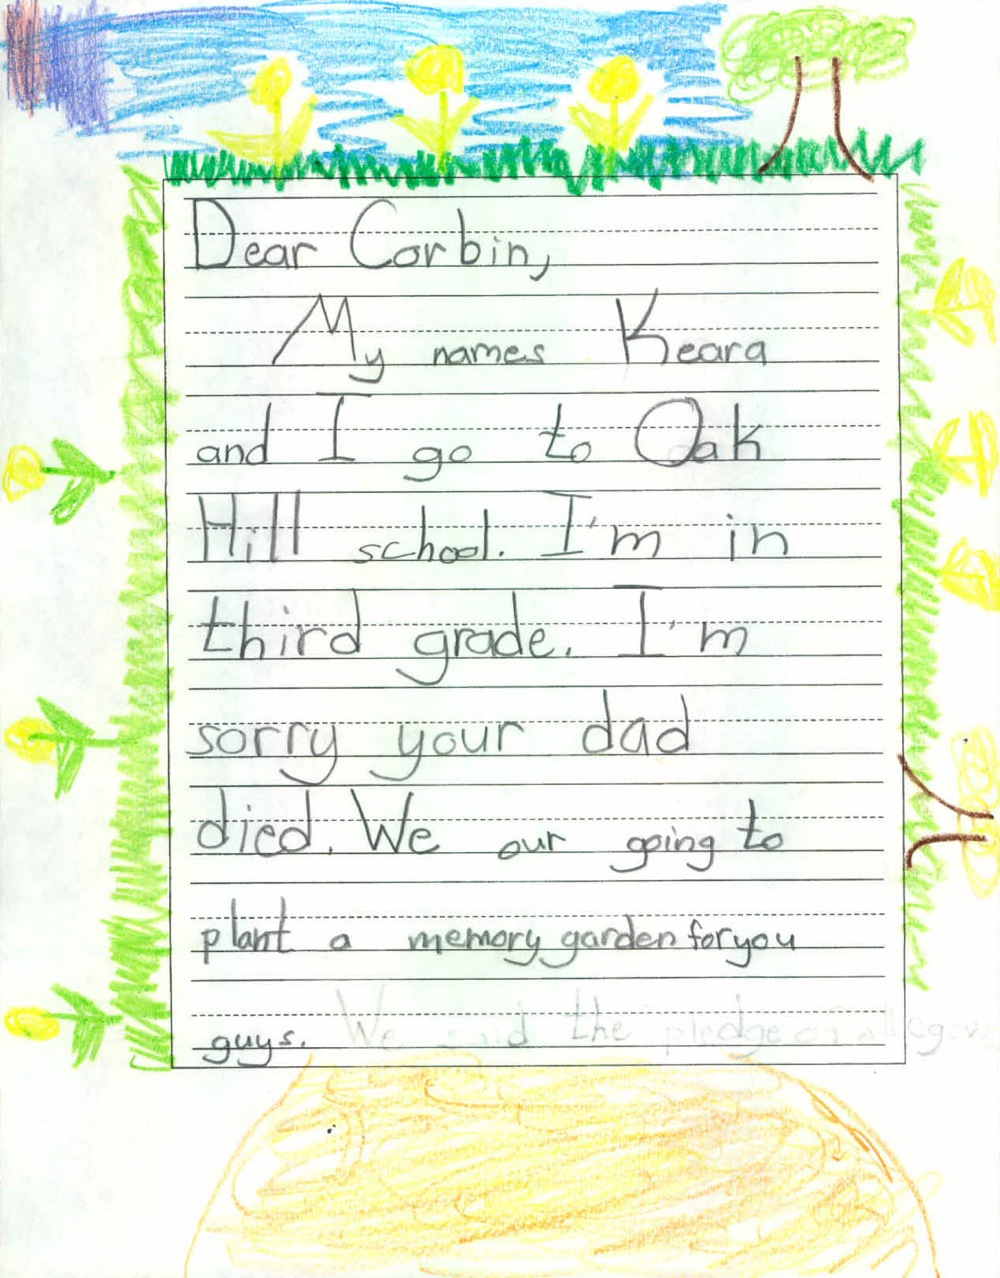 Dear Corbin,
My names Keara
and I go to Oak
Hill school. I'm in
third grade. I'm
sorry your dad
died. We our going to
plant a memory garden for you
guys. We said the pledge of